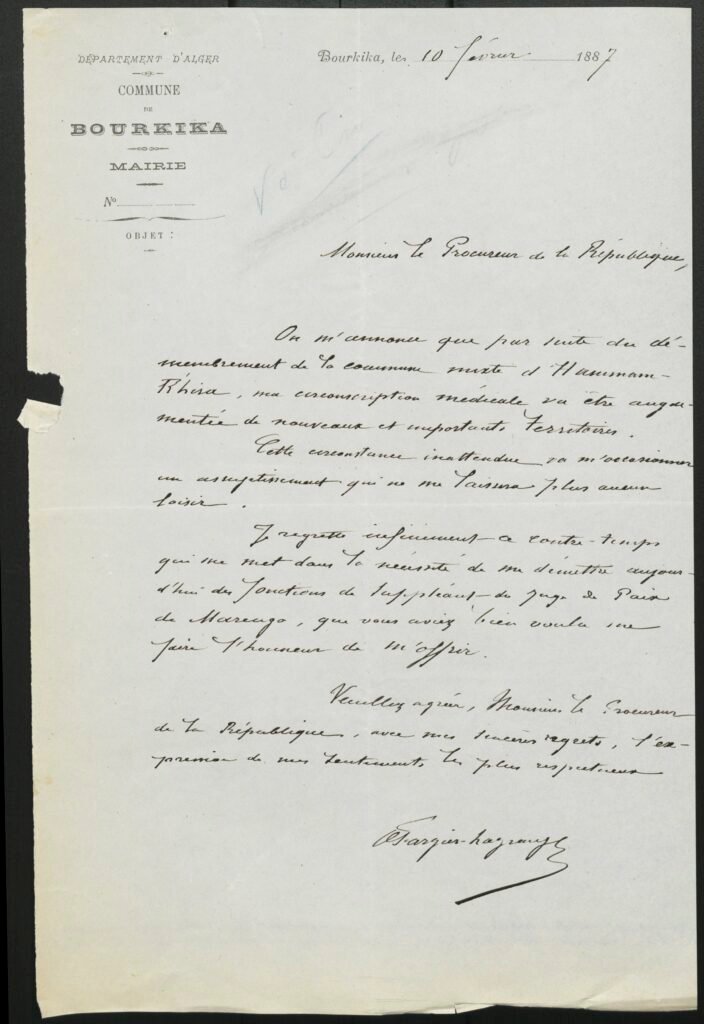 DÉPARTEMENT D'ALGER
COMMUNE
DE
BOURKIKA
MAIRIE
No
OBJET :
Bourkika, le 10 février 1887
Monsieur le Procureur de la République,
On m'annonce que par suite du dé-
membrement de la commune mixte d'Hammam-
Rhira, ma circonscription médicale va être aug-
mentée de nouveaux et importants territoires.
Cette circonstance inattendue va m'occasionner
un assujetissement qui ne me laissera plus aucun
loisir.
Je regrette infiniment ce contre-temps
qui me met dans la nécessité de me démettre aujour-
d'hui des fonctions de Suppléant du Juge de Paix
de Marengo, que vous aviez bien voulu me
faire l'honneur de m'offrir.
Veuillez agréer, Monsieur le Procureur
de la République, avec mes sincères regrets, l'ex-
pression de mes sentiments les plus respectueux
Fargier-Lagrange